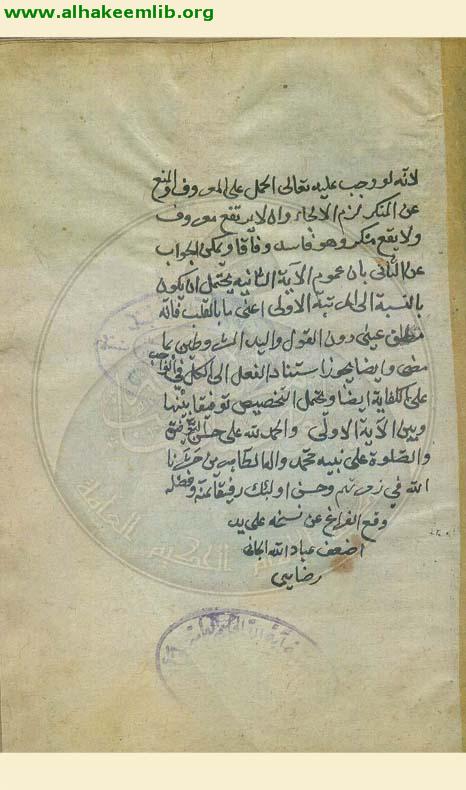 www.alhakeemlib.org
لانه لو وجب عليه تعالى الحمل على المعروف والمنع
عن المنكر لزم الالجاء وان لا يرتفع معروف
ولا يقع منكر وهو فاسد وفاقا ويمكن الجواب
عن الثاني بان عموم الآية الثانية يحتمل ان يكون
بالنسبة الى المرتبة الاولى اعني ما بالقلب فانه
مطلق عيني دون القول واليد المشروطين بما
مضى وايضا يجوز استناد الفعل الى الكل في الواجب
على الكفاية ايضا ويحتمل التخصيص توفيقا بينها
وبين الآية الاولى والحمد لله على حسن التوفيق
والصلوة على نبيه محمد وآله الطاهرين حشرنا
الله في زمرتهم وحسن اولئك رفيقا بمنه وفضله
وقع الفراغ عن نسخه على يد
اضعف عباد الله الجاني